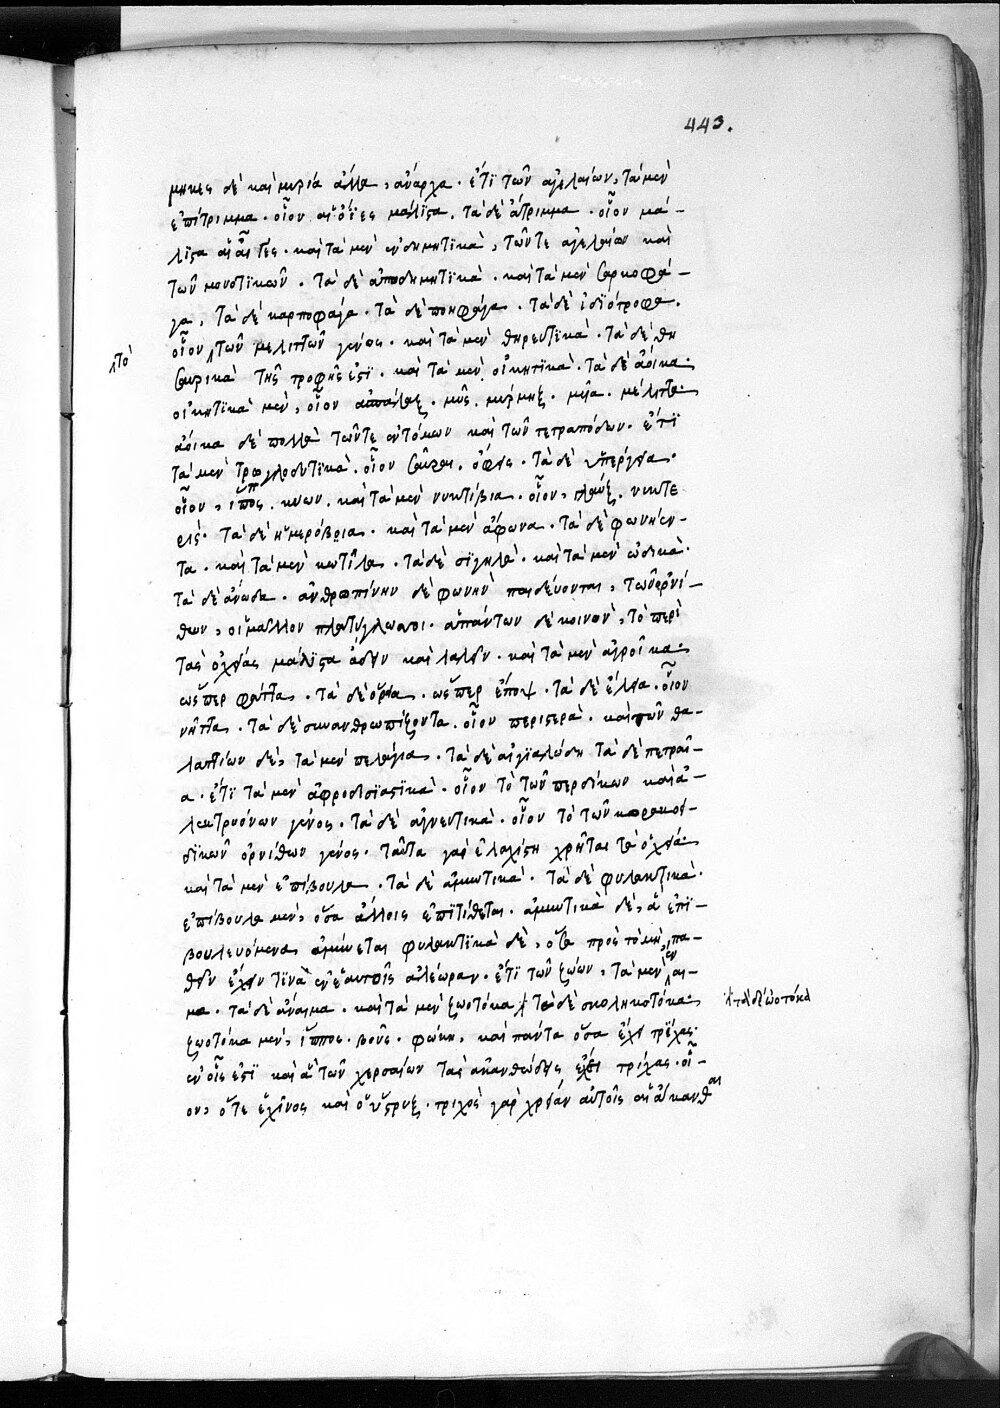 443.
μηκες δὲ καὶ μυρία ἄλλα, ἄναρχα. ἔτι τῶν ἀγελαίων, τὰ μὲν
ἐπίτριμμα. οἷον αἱ ὄϊες μάλιστα. τὰ δὲ ἄτριμμα. οἷον μά-
λιστα αἱ αἶγες. καὶ τὰ μὲν ἐνδημητικὰ, τῶν τε ἀγελαίων καὶ
τῶν μοναδικῶν. τὰ δὲ ἀποδημητικὰ. καὶ τὰ μὲν σαρκοφά-
γα, τὰ δὲ καρποφάγα. τὰ δὲ ποηφάγα. τὰ δὲ ἰδιότροφα.
οἷον τῶν μελιττῶν γένος. καὶ τὰ μὲν θηρευτικὰ. τὰ δὲ θη
τὸ
σαυρικὰ τῆς τροφῆς ἐστι. καὶ τὰ μὲν οἰκητικὰ. τὰ δὲ ἄοικα.
οἰκητικὰ μὲν, οἷον μῦς. μύρμηξ. μυῖα. μέλιττα.
ἄοικα δὲ πολλὰ τῶν τε ἐντόμων καὶ τῶν τετραπόδων. ἔτι
τὰ μὲν τρωγλοδυτικὰ. οἷον σαῦραι. ὄφεις. τὰ δὲ ὑπέργεια.
οἷον, ἵππος. κύων. καὶ τὰ μὲν νυκτίβια. οἷον, γλαύξ. νυκτε
ρίς. τὰ δὲ ἡμερόβια. καὶ τὰ μὲν ἄφωνα. τὰ δὲ φωνήεν-
τα. καὶ τὰ μὲν κωτίλα. τὰ δὲ σιγηλὰ. καὶ τὰ μὲν ᾠδικὰ.
τὰ δὲ ἄνωδα. ἀνθρωπίνην δὲ φωνὴν παιδεύονται, τῶν ὀρνί-
θων, οἱ μᾶλλον πλατύγλωττοι. ἁπάντων δὲ κοινὸν, τὸ περὶ
τὰς ὀχείας μάλιστα ᾄδειν καὶ λαλεῖν. καὶ τὰ μὲν ἀγροῖκα.
ὥσπερ φάττα. τὰ δὲ ὄρεια. ὥσπερ ἔποψ. τὰ δὲ ἕλεια. οἷον
νῆττα. τὰ δὲ συνανθρωπίζοντα. οἷον περιστερὰ. καὶ τῶν θα-
λαττίων δὲ, τὰ μὲν πελάγια. τὰ δὲ αἰγιαλώδη τὰ δὲ πετραῖ-
α. ἔτι τὰ μὲν ἀφροδισιαστικὰ. οἷον τὸ τῶν περδίκων καὶ ἀ-
λεκτρυόνων γένος. τὰ δὲ ἁγνευτικὰ. οἷον τὸ τῶν κορακοει-
δικῶν ὀρνίθων γένος. ταῦτα γὰρ ἐλαχίστη χρῆται τῇ ὀχείᾳ.
καὶ τὰ μὲν ἐπίβουλα. τὰ δὲ ἀμυντικὰ. τὰ δὲ φυλακτικὰ.
ἐπίβουλα μὲν, ὅσα ἄλλοις ἐπιτίθεται. ἀμυντικὰ δὲ, ἃ ἐπι-
βουλευόμενα ἀμύνεται φυλακτικὰ δὲ, ὅσα πρὸς τὸ μὴ πα-
θεῖν ἔχειν τινὰ ἐν ἑαυτοῖς ἀλεώραν. ἔτι τῶν ζώων, τὰ μὲν ἔναι-
μα. τὰ δὲ ἄναιμα. καὶ τὰ μὲν ζωοτόκα τὰ δὲ σκοληκοτόκα.
τὰ δὲ ὠοτόκα
ζωοτόκα μὲν, ἵππος. βοῦς. φώκη. καὶ πάντα ὅσα ἔχει τρίχας.
ἐν οἷς ἐστι καὶ ἃ τῶν χερσαίων τὰς ἀκανθώδεις ἔχει τρίχας. οἷ-
ον, ὅ τε ἐχῖνος καὶ ὁ ὕστριξ. τριχὸς γὰρ χρείαν αὐτοῖς αἱ ἄκανθαι